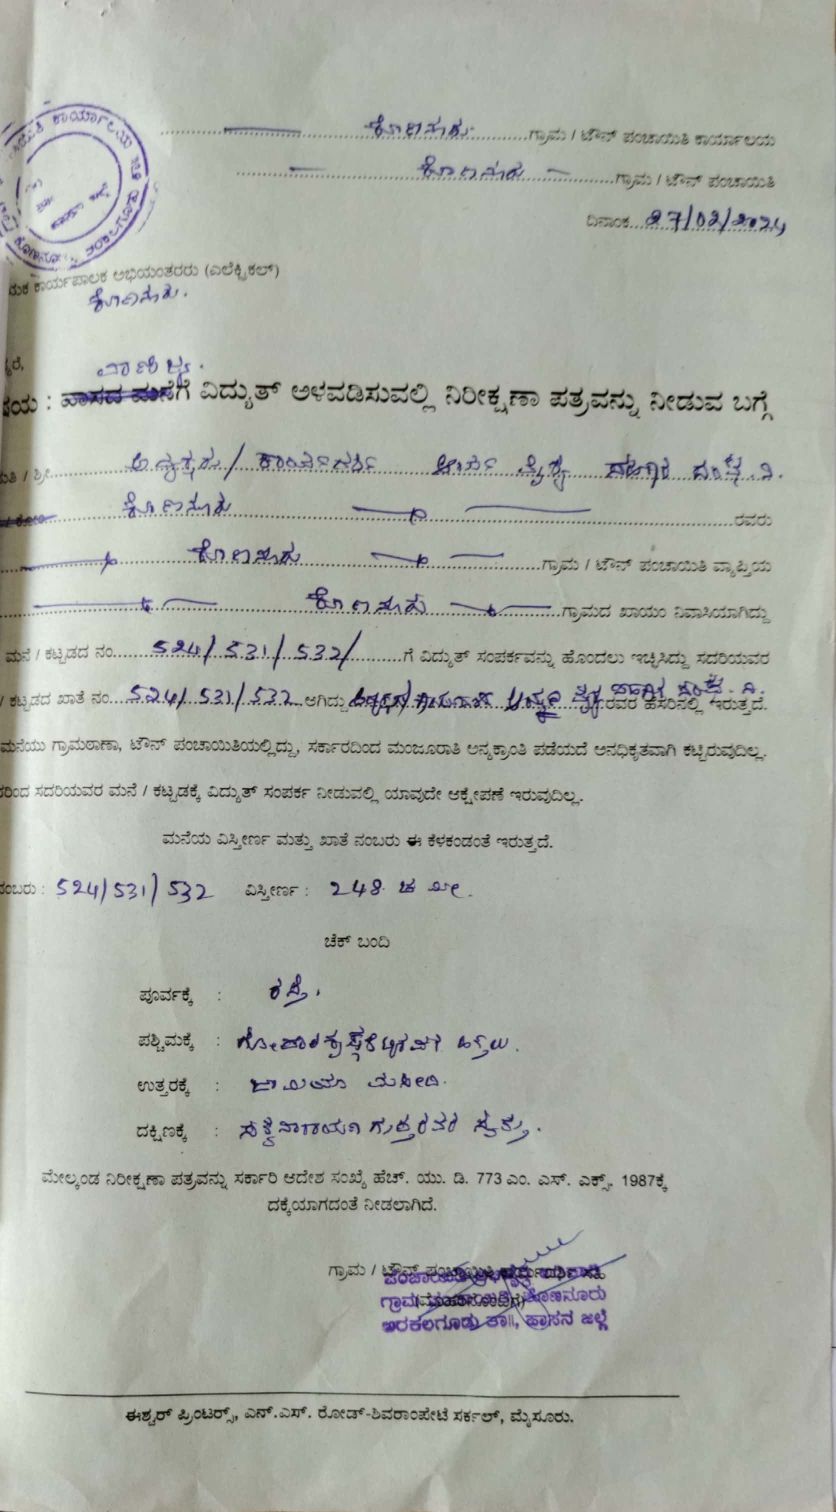 ಕೊಣನೂರು ಗ್ರಾಮ / ಟೌನ್ ಪಂಚಾಯಿತಿ ಕಾರ್ಯಾಲಯ
ಕೊಣನೂರು ಗ್ರಾಮ / ಟೌನ್ ಪಂಚಾಯಿತಿ
ದಿನಾಂಕ 27/02/2024
ಕಾರ್ಯಪಾಲಕ ಅಭಿಯಂತರರು (ಎಲೆಕ್ಟ್ರಿಕಲ್)
ಕೊಣನೂರು.
ವಾಣಿಜ್ಯ.
: ವಾಸದ ಮನೆಗೆ ವಿದ್ಯುತ್ ಅಳವಡಿಸುವಲ್ಲಿ ನಿರೀಕ್ಷಣಾ ಪತ್ರವನ್ನು ನೀಡುವ ಬಗ್ಗೆ
/ ಶ್ರೀ ಅಧ್ಯಕ್ಷರು / ಕಾರ್ಯದರ್ಶಿ ಆರ್ಯ ವೈಶ್ಯ ಸಹಕಾರ ಸಂಘ ನಿ.
ಕೊಣನೂರು ರವರು
ಕೊಣನೂರು ಗ್ರಾಮ / ಟೌನ್ ಪಂಚಾಯಿತಿ ವ್ಯಾಪ್ತಿಯ
ಕೊಣನೂರು ಗ್ರಾಮದ ಖಾಯಂ ನಿವಾಸಿಯಾಗಿದ್ದು
ಮನೆ / ಕಟ್ಟಡದ ನಂ. 524/531/532/ ಗೆ ವಿದ್ಯುತ್ ಸಂಪರ್ಕವನ್ನು ಹೊಂದಲು ಇಚ್ಛಿಸಿದ್ದು ಸದರಿಯವರ
/ ಕಟ್ಟಡದ ಖಾತೆ ನಂ. 524/531/532 ಆಗಿದ್ದು ರವರ ಹೆಸರಿನಲ್ಲಿ ಇರುತ್ತದೆ.
ಮನೆಯು ಗ್ರಾಮಠಾಣಾ, ಟೌನ್ ಪಂಚಾಯಿತಿಯಲ್ಲಿದ್ದು, ಸರ್ಕಾರದಿಂದ ಮಂಜೂರಾತಿ ಅನ್ಯಕ್ರಾಂತಿ ಪಡೆಯದೆ ಅನಧಿಕೃತವಾಗಿ ಕಟ್ಟಿರುವುದಿಲ್ಲ.
ಸದರಿಯವರ ಮನೆ / ಕಟ್ಟಡಕ್ಕೆ ವಿದ್ಯುತ್ ಸಂಪರ್ಕ ನೀಡುವಲ್ಲಿ ಯಾವುದೇ ಆಕ್ಷೇಪಣೆ ಇರುವುದಿಲ್ಲ.
ಮನೆಯ ವಿಸ್ತೀರ್ಣ ಮತ್ತು ಖಾತೆ ನಂಬರು ಈ ಕೆಳಕಂಡಂತೆ ಇರುತ್ತದೆ.
ನಂಬರು : 524/531/532 ವಿಸ್ತೀರ್ಣ : 248 ಚ ಮೀ.
ಚೆಕ್ ಬಂದಿ
ಪೂರ್ವಕ್ಕೆ : ರಸ್ತೆ.
ಪಶ್ಚಿಮಕ್ಕೆ : ಹಿತ್ತಲು.
ಉತ್ತರಕ್ಕೆ : ಜಾಮಿಯಾ ಮಸೀದಿ.
ದಕ್ಷಿಣಕ್ಕೆ : ಗುಪ್ತರವರ ಸ್ವತ್ತು.
ಮೇಲ್ಕಂಡ ನಿರೀಕ್ಷಣಾ ಪತ್ರವನ್ನು ಸರ್ಕಾರಿ ಆದೇಶ ಸಂಖ್ಯೆ ಹೆಚ್. ಯು. ಡಿ. 773 ಎಂ. ಎಸ್. ಎಕ್ಸ್. 1987ಕ್ಕೆ
ದಕ್ಕೆಯಾಗದಂತೆ ನೀಡಲಾಗಿದೆ.
ಗ್ರಾಮ / ಟೌನ್ ಪಂಚಾಯಿತಿ
ಗ್ರಾಮ ಕೊಣನೂರು
ಅರಕಲಗೂಡು ತಾ||, ಹಾಸನ ಜಿಲ್ಲೆ
ಈಶ್ವರ್ ಪ್ರಿಂಟರ್ಸ್, ಎನ್.ಎಸ್. ರೋಡ್-ಶಿವರಾಂಪೇಟೆ ಸರ್ಕಲ್, ಮೈಸೂರು.